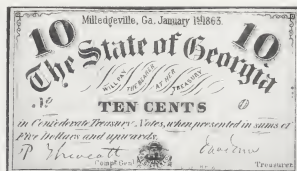 Milledgeville, Ga. January 1st 1863.
10 10
The State of Georgia
WILL PAY THE BEARER AT HER TREASURY
TEN CENTS
in Confederate Treasury Notes, when presented in sums of
Five Dollars and upwards.
Compt. Genl. Treasurer